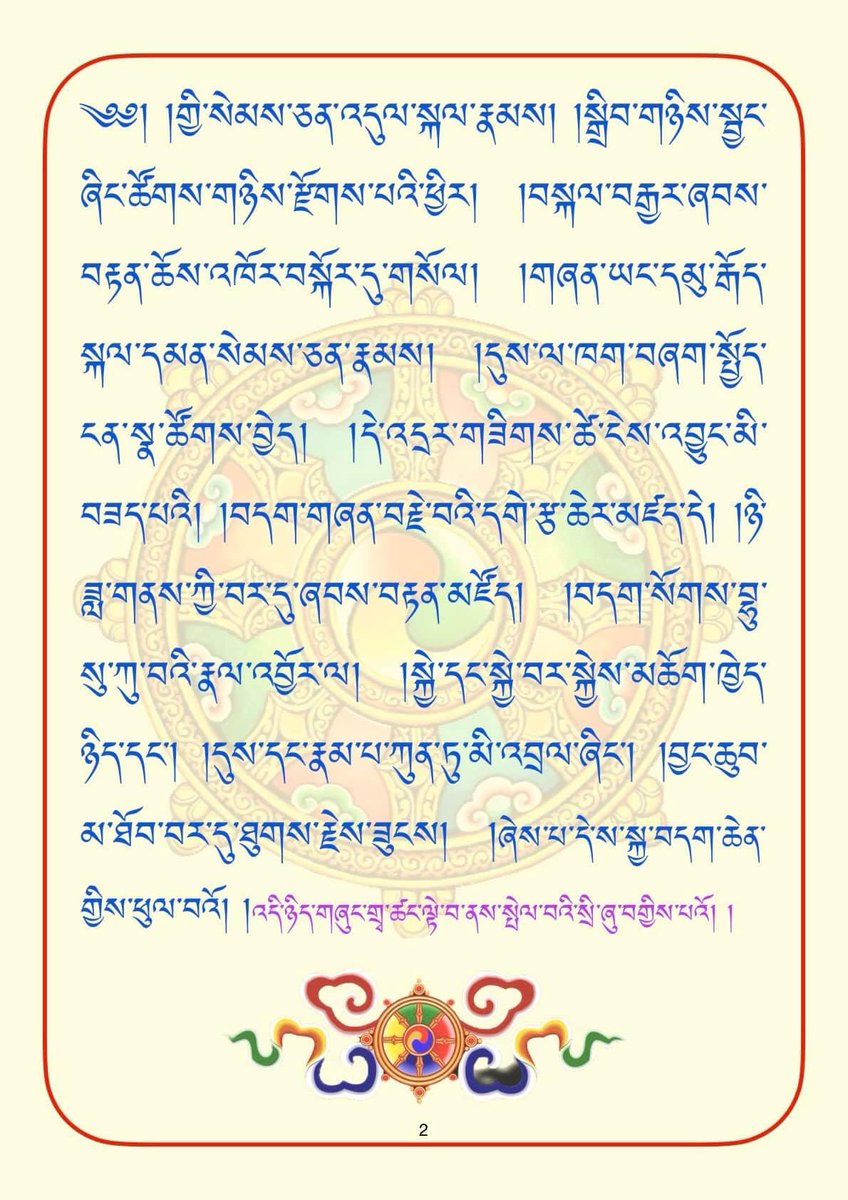 ༄༅། །གྱི་སེམས་ཅན་འདུལ་སྐལ་རྣམས། །སྒྲིབ་གཉིས་སྦྱང་
ཞིང་ཚོགས་གཉིས་རྫོགས་པའི་ཕྱིར། །བསྐལ་བརྒྱར་ཞབས་
བརྟན་ཆོས་འཁོར་བསྐོར་དུ་གསོལ། །གཞན་ཡང་དམུ་རྒོད་
སྐལ་དམན་སེམས་ཅན་རྣམས། །དུས་ལ་ཁག་བཞག་སྤྱོད་
ངན་སྣ་ཚོགས་བྱེད། །དེ་འདྲར་གཟིགས་ཚེ་ངེས་འབྱུང་མི་
བཟད་པའི། །བདག་གཞན་བརྗེ་བའི་དགེ་རྩ་ཆེར་མཛད་དེ། །ཉི་
ཟླ་གནས་ཀྱི་བར་དུ་ཞབས་བརྟན་མཛོད། །བདག་སོགས་བྷུ་
སུ་ཀུ་བའི་རྣལ་འབྱོར་ལ། །སྐྱེ་དང་སྐྱེ་བར་སྐྱེས་མཆོག་ཁྱེད་
ཉིད་དང་། །དུས་དང་རྣམ་པ་ཀུན་ཏུ་མི་འབྲལ་ཞིང་། །བྱང་ཆུབ་
མ་ཐོབ་བར་དུ་ཐུགས་རྗེས་ཟུངས། །ཞེས་པ་དེས་སྐྱ་བདག་ཆེན་
གྱིས་ཕུལ་བའོ། །འདི་ཉིད་གཞུང་གྲྭ་ཚང་ལྟེ་བ་ནས་སྤེལ་བའི་སྲི་ཞུ་བགྱིས་པའོ། །
2